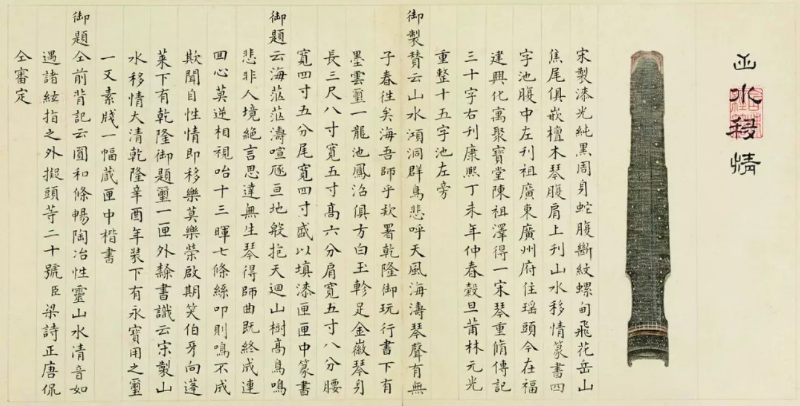 山水移情
宋製漆光純黑周身蛇腹斷紋螺甸飛花岳山
焦尾俱嵌檀木琴腹肩上刊山水移情篆書四
字池腹中左刊祖廣東廣州府住瑤頭今在福
建興化萬聚寶堂陳祖澤得一宋琴重脩傳記
三十字右刊康熙丁未年仲春穀旦莆林元光
重整十五字池左旁
御製贊云山水澒洞群鳥悲呼天風海濤琴聲有無
子春徃矣海吾師乎款署乾隆御玩行書下有
墨雲璽一龍池鳳沼俱方白玉軫足金徽琴身
長三尺八寸寬五寸高六分肩寬五寸八分腰
寬四寸五分尾寬四寸盛以填漆匣匣中篆書
御題云海茫茫濤喧豗亘地般抱天迴山樹高鳥鳴
悲非人境絕言思達無生琴得師曲既終成連
回心莫逆相視咍十三暉七條絲叩則鳴不成
欺聞自性情即移樂莫樂榮啟期笑伯牙向蓬
萊下有乾隆御題璽一匣外隸書識云宋製山
水移情大清乾隆辛酉年裝下有永寶用之璽
一又素牋一幅藏匣中楷書
御題仝前背記云圓和條暢陶冶性靈山水清音如
遇諸絃指之外擬頭等二十號臣梁詩正唐侃
仝審定